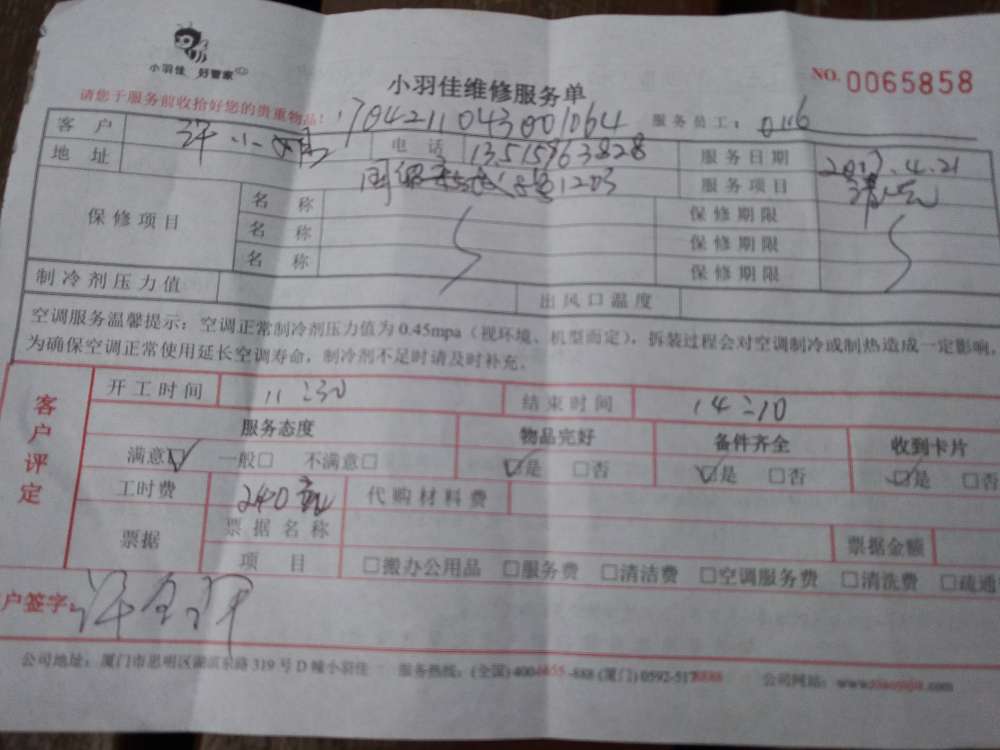 小羽佳 好管家
小羽佳维修服务单
NO. 0065858
请您于服务前收拾好您的贵重物品!
1704211043001064 服务员工: 0116
客户 许小 电话 13515963828 服务日期 2017.4.21
地址 1203 服务项目 清洗
保修项目 名称 保修期限
名称 保修期限
名称 保修期限
制冷剂压力值 出风口温度
空调服务温馨提示:空调正常制冷剂压力值为0.45mpa(视环境、机型而定),拆装过程会对空调制冷或制热造成一定影响。
为确保空调正常使用延长空调寿命,制冷剂不足时请及时补充。
客户评定
开工时间 11:30 结束时间 14:10
服务态度 物品完好 备件齐全 收到卡片
满意☑ 一般□ 不满意□ ☑是 □否 ☑是 □否 ☑是 □否
工时费 240 代购材料费
票据 票据名称 票据金额
项目 □搬办公用品 □服务费 □清洁费 □空调服务费 □清洗费 □疏通
户签字:
公司地址:厦门市思明区湖滨东路319号D幢小羽佳 服务热线:(全国)400 -888 (厦门)0592-517 公司网站: